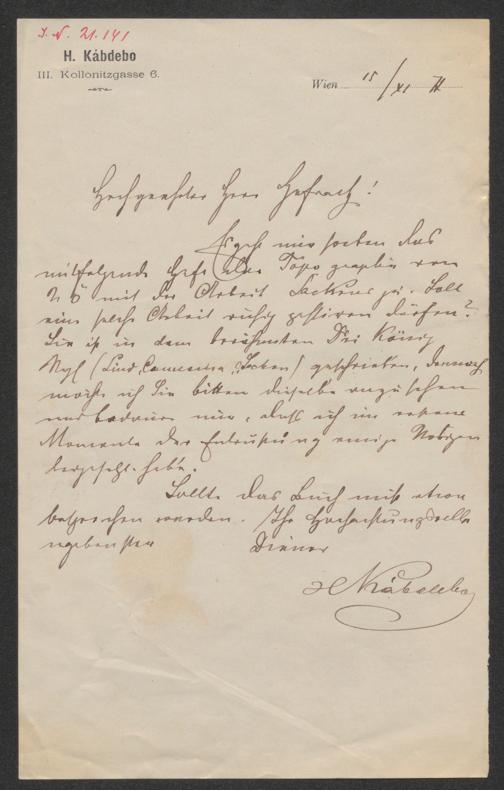 I. N. 21.141
H. Kábdebo
III. Kollonitzgasse 6.
Wien 15/XI
Hochgeehrter Herr Hofrath!
Es geht mir soeben das
mitfolgende Heft der Topographie von
N Ö mit der Arbeit zu. Soll
eine solche Arbeit ruhig passiren dürfen?
Sie ist in dem berühmten Drei König
Styl (Lind, ) geschrieben, dennoch
möchte ich Sie bitten dieselbe anzusehen
und bedaure nur, dass ich im ersten
Momente der Entrüstung einige Notizen
habe.
Sollte das Buch nicht etwa
besprochen werden. Ihr hochachtungsvoll
ergebenster Diener
H Kábdebo